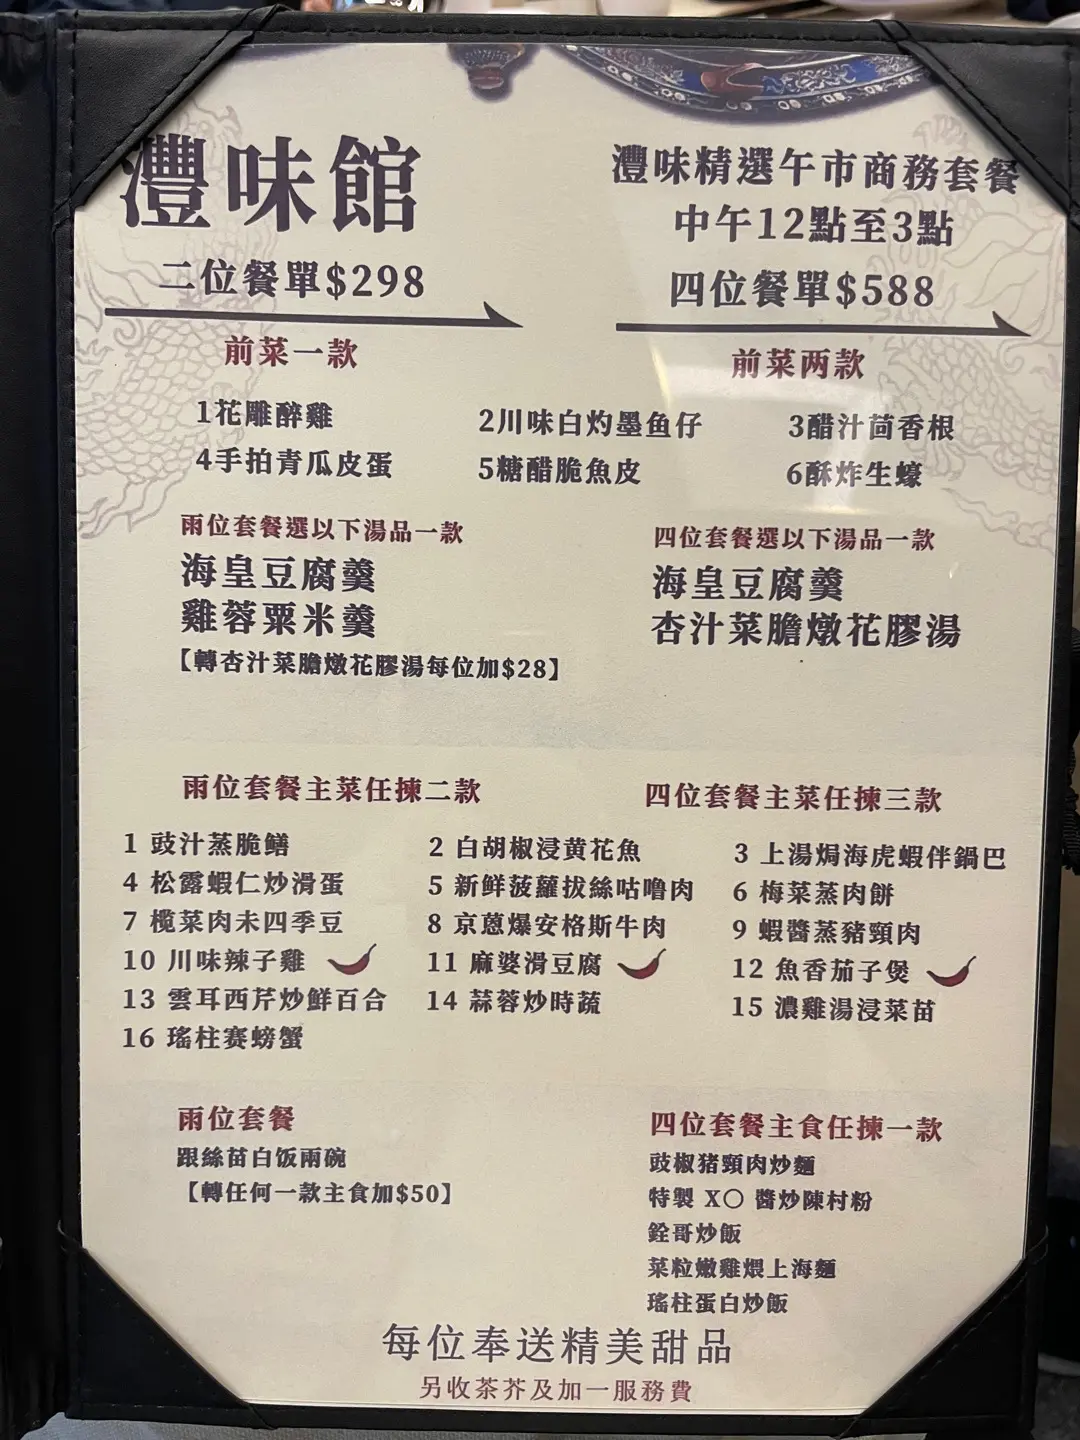 灃味館
灃味精選午市商務套餐
中午12點至3點
二位餐單$298
四位餐單$588
前菜一款
前菜两款
1花雕醉雞
2川味白灼墨鱼仔
3醋汁茴香根
4手拍青瓜皮蛋
5糖醋脆魚皮
6酥炸生蠔
兩位套餐選以下湯品一款
海皇豆腐羹
雞蓉粟米羹
【轉杏汁菜膽燉花膠湯每位加$28】
四位套餐選以下湯品一款
海皇豆腐羹
杏汁菜膽燉花膠湯
兩位套餐主菜任揀二款
四位套餐主菜任揀三款
1 豉汁蒸脆鱔
2 白胡椒浸黄花魚
3 上湯焗海虎蝦伴鍋巴
4 松露蝦仁炒滑蛋
5 新鮮菠蘿拔絲咕嚕肉
6 梅菜蒸肉餅
7 榄菜肉末四季豆
8 京蔥爆安格斯牛肉
9 蝦醬蒸豬頸肉
10 川味辣子雞
11 麻婆滑豆腐
12 魚香茄子煲
13 雲耳西芹炒鮮百合
14 蒜蓉炒時蔬
15 濃雞湯浸菜苗
16 瑤柱赛螃蟹
兩位套餐
跟絲苗白饭兩碗
【轉任何一款主食加$50】
四位套餐主食任揀一款
豉椒猪頸肉炒麵
特製 X〇 醬炒陳村粉
銓哥炒飯
菜粒嫩雞煨上海麵
瑤柱蛋白炒飯
每位奉送精美甜品
另收茶芥及加一服務費